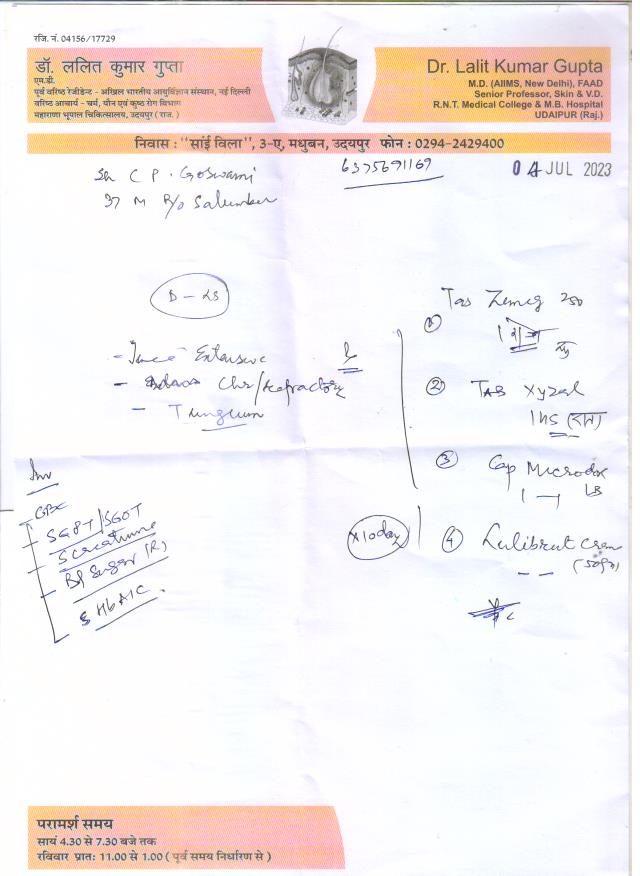 रजि. नं. 04156/17729
डॉ. ललित कुमार गुप्ता
एम.डी.
पूर्व वरिष्ठ रेजीडेन्ट - अखिल भारतीय आयुर्विज्ञान संस्थान, नई दिल्ली
वरिष्ठ आचार्य - चर्म, यौन एवं कुष्ठ रोग विभाग
महाराणा भूपाल चिकित्सालय, उदयपुर ( राज. )
Dr. Lalit Kumar Gupta
M.D. (AIIMS, New Delhi), FAAD
Senior Professor, Skin & V.D.
R.N.T. Medical College & M.B. Hospital
UDAIPUR (Raj.)
निवास : "सांई विला", 3-ए, मधुबन, उदयपुर फोन : 0294-2429400
6375691169
04 JUL 2023
C P. Goswami
37 M R/o Salumber
Extensive
Chr/Refractory
T
Inv
CBC
SGPT/SGOT
S creatinine
Bl Sugar (R)
S HbA1C
Tab 250
①
② TAB Xyzal
1 HS (रात)
③ Cap Microdox LB
X10day
④ Cream
परामर्श समय
सायं 4.30 से 7.30 बजे तक
रविवार प्रातः 11.00 से 1.00 ( पूर्व समय निर्धारण से )